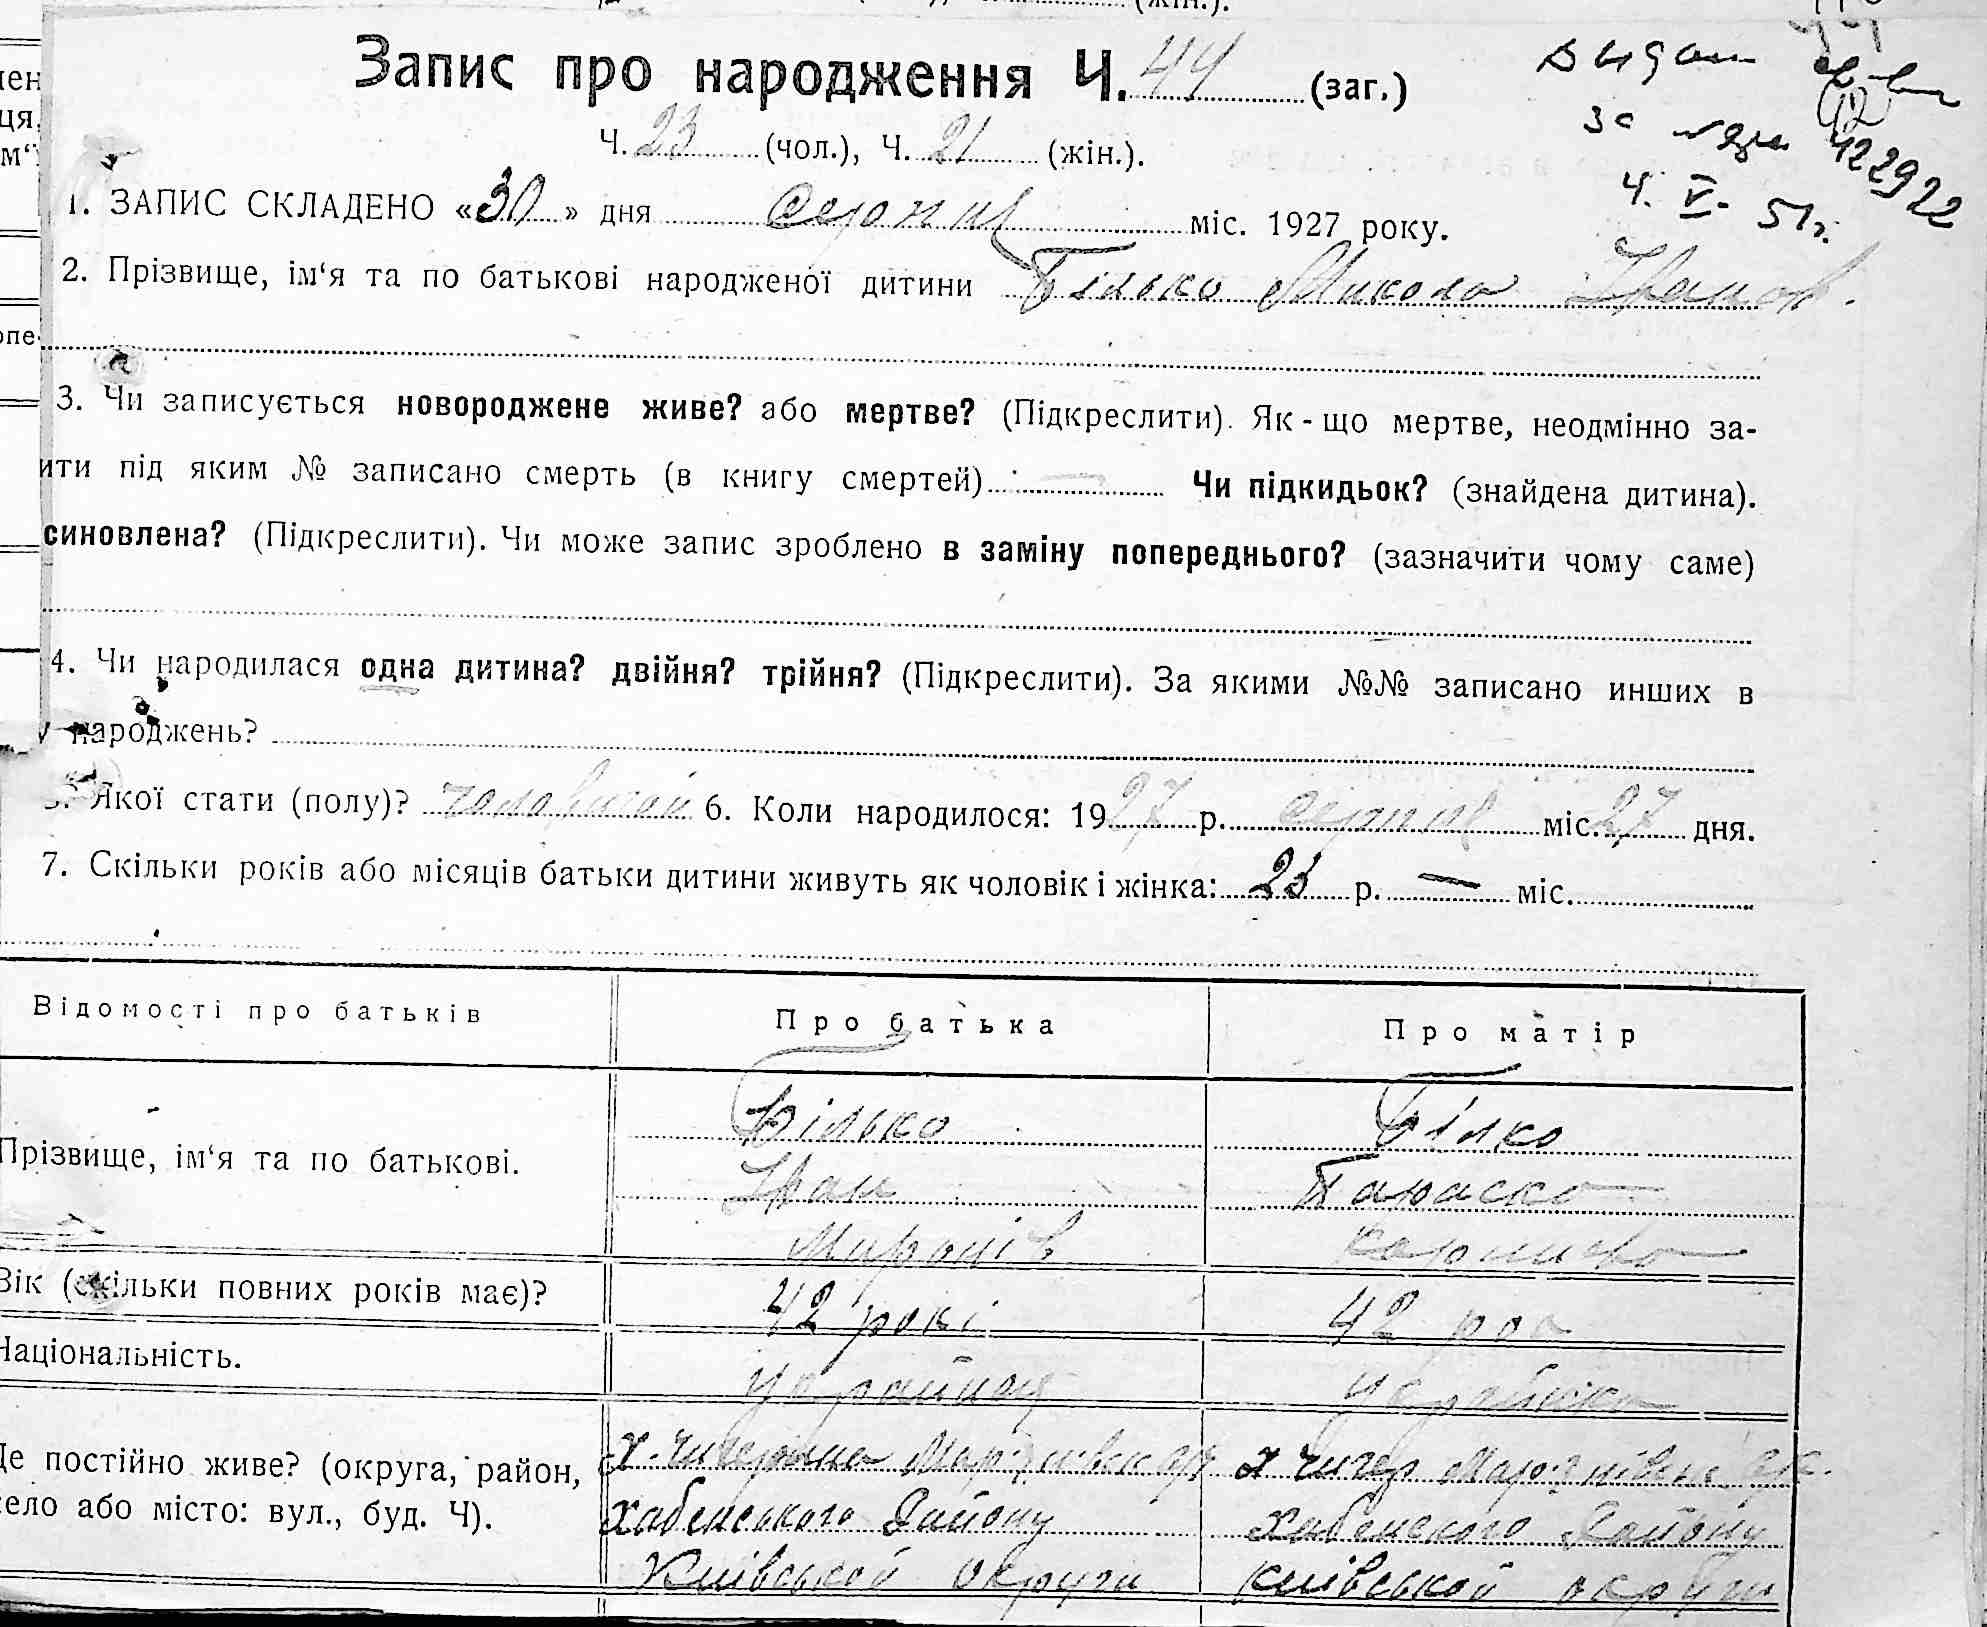 (жін.).
Запис про народження Ч. 44 (заг.)
Ч. 23 (чол.), Ч. 21 (жін.).
за
422922
4. V- 51г.
1. ЗАПИС СКЛАДЕНО «30» дня серпня міс. 1927 року.
2. Прізвище, ім‘я та по батькові народженої дитини Білько Микола Іванов.
3. Чи записується новороджене живе? або мертве? (Підкреслити). Як-що мертве, неодмінно за-
ити під яким № записано смерть (в книгу смертей) — Чи підкидьок? (знайдена дитина).
синовлена? (Підкреслити). Чи може запис зроблено в заміну попереднього? (зазначити чому саме)
4. Чи народилася одна дитина? двійня? трійня? (Підкреслити). За якими №№ записано инших в
народжень?
5. Якої стати (полу)? 6. Коли народилося: 1927 р. серпня міс. 27 дня.
7. Скільки років або місяців батьки дитини живуть як чоловік і жінка: р. — міс.
Відомості про батьків Про батька Про матір
Білько Білко
Прізвище, ім‘я та по батькові.
Іван Параска
Миронів
Вік (скільки повних років має)? 42 рокі 42 рок
Національність.
українец українка
Де постійно живе? (округа, район,
село або місто: вул., буд. Ч).
Хабенського Району Хабенского Району
Київськой округи Київськой округи